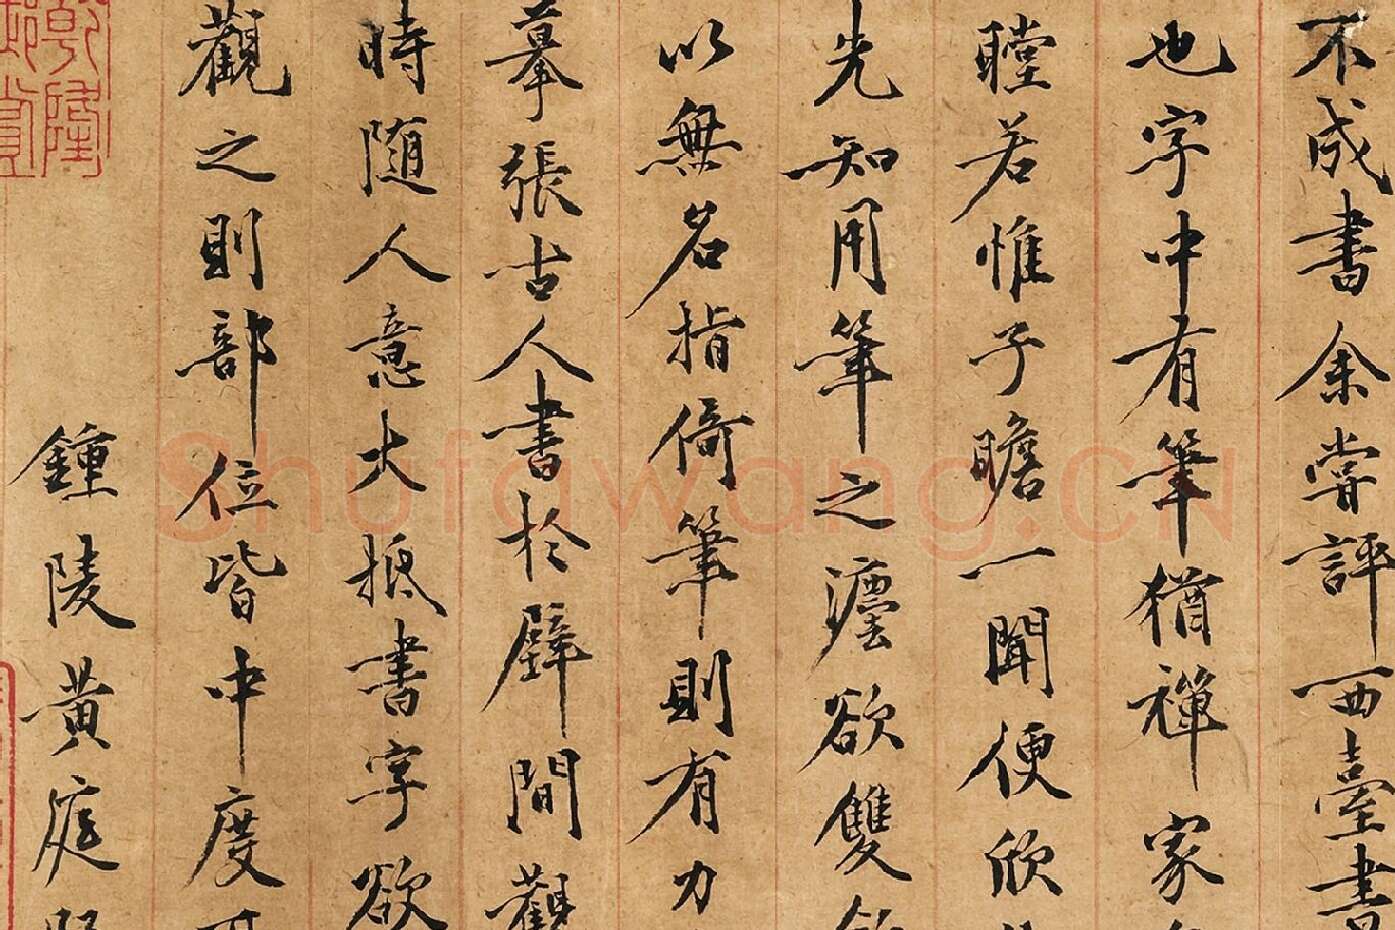 不成書余嘗評西臺書
也字中有筆猶禪家
瞠若惟子瞻一聞便欣
光知用筆之灋欲雙
以無名指倚筆則有力
摹張古人書於壁間觀
時随人意大抵書字欲
觀之則部位皆中度
鍾陵黃庭
乾隆
Shufawang.CN